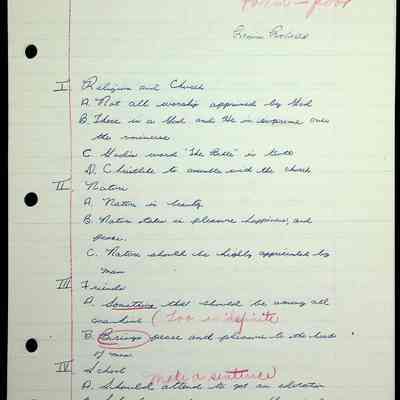 Form - poor
I Religion and Church
A. Not all worship approved by God
B. There is a God and He is supreme over
the universe.
C. God's word "The Bible" is truth
D. Christlike to assemble with the church
II. Nature
A. Nature is beauty
B. Nature is pleasure happiness, and
peace.
C. Nature should be highly appreciated by
man
III Friends
A. Something that should be among all
mankind (Too indefinite
B. Brings peace and pleasure to the heart
of man.
IV School make a sentence
A. Should attend to get an education